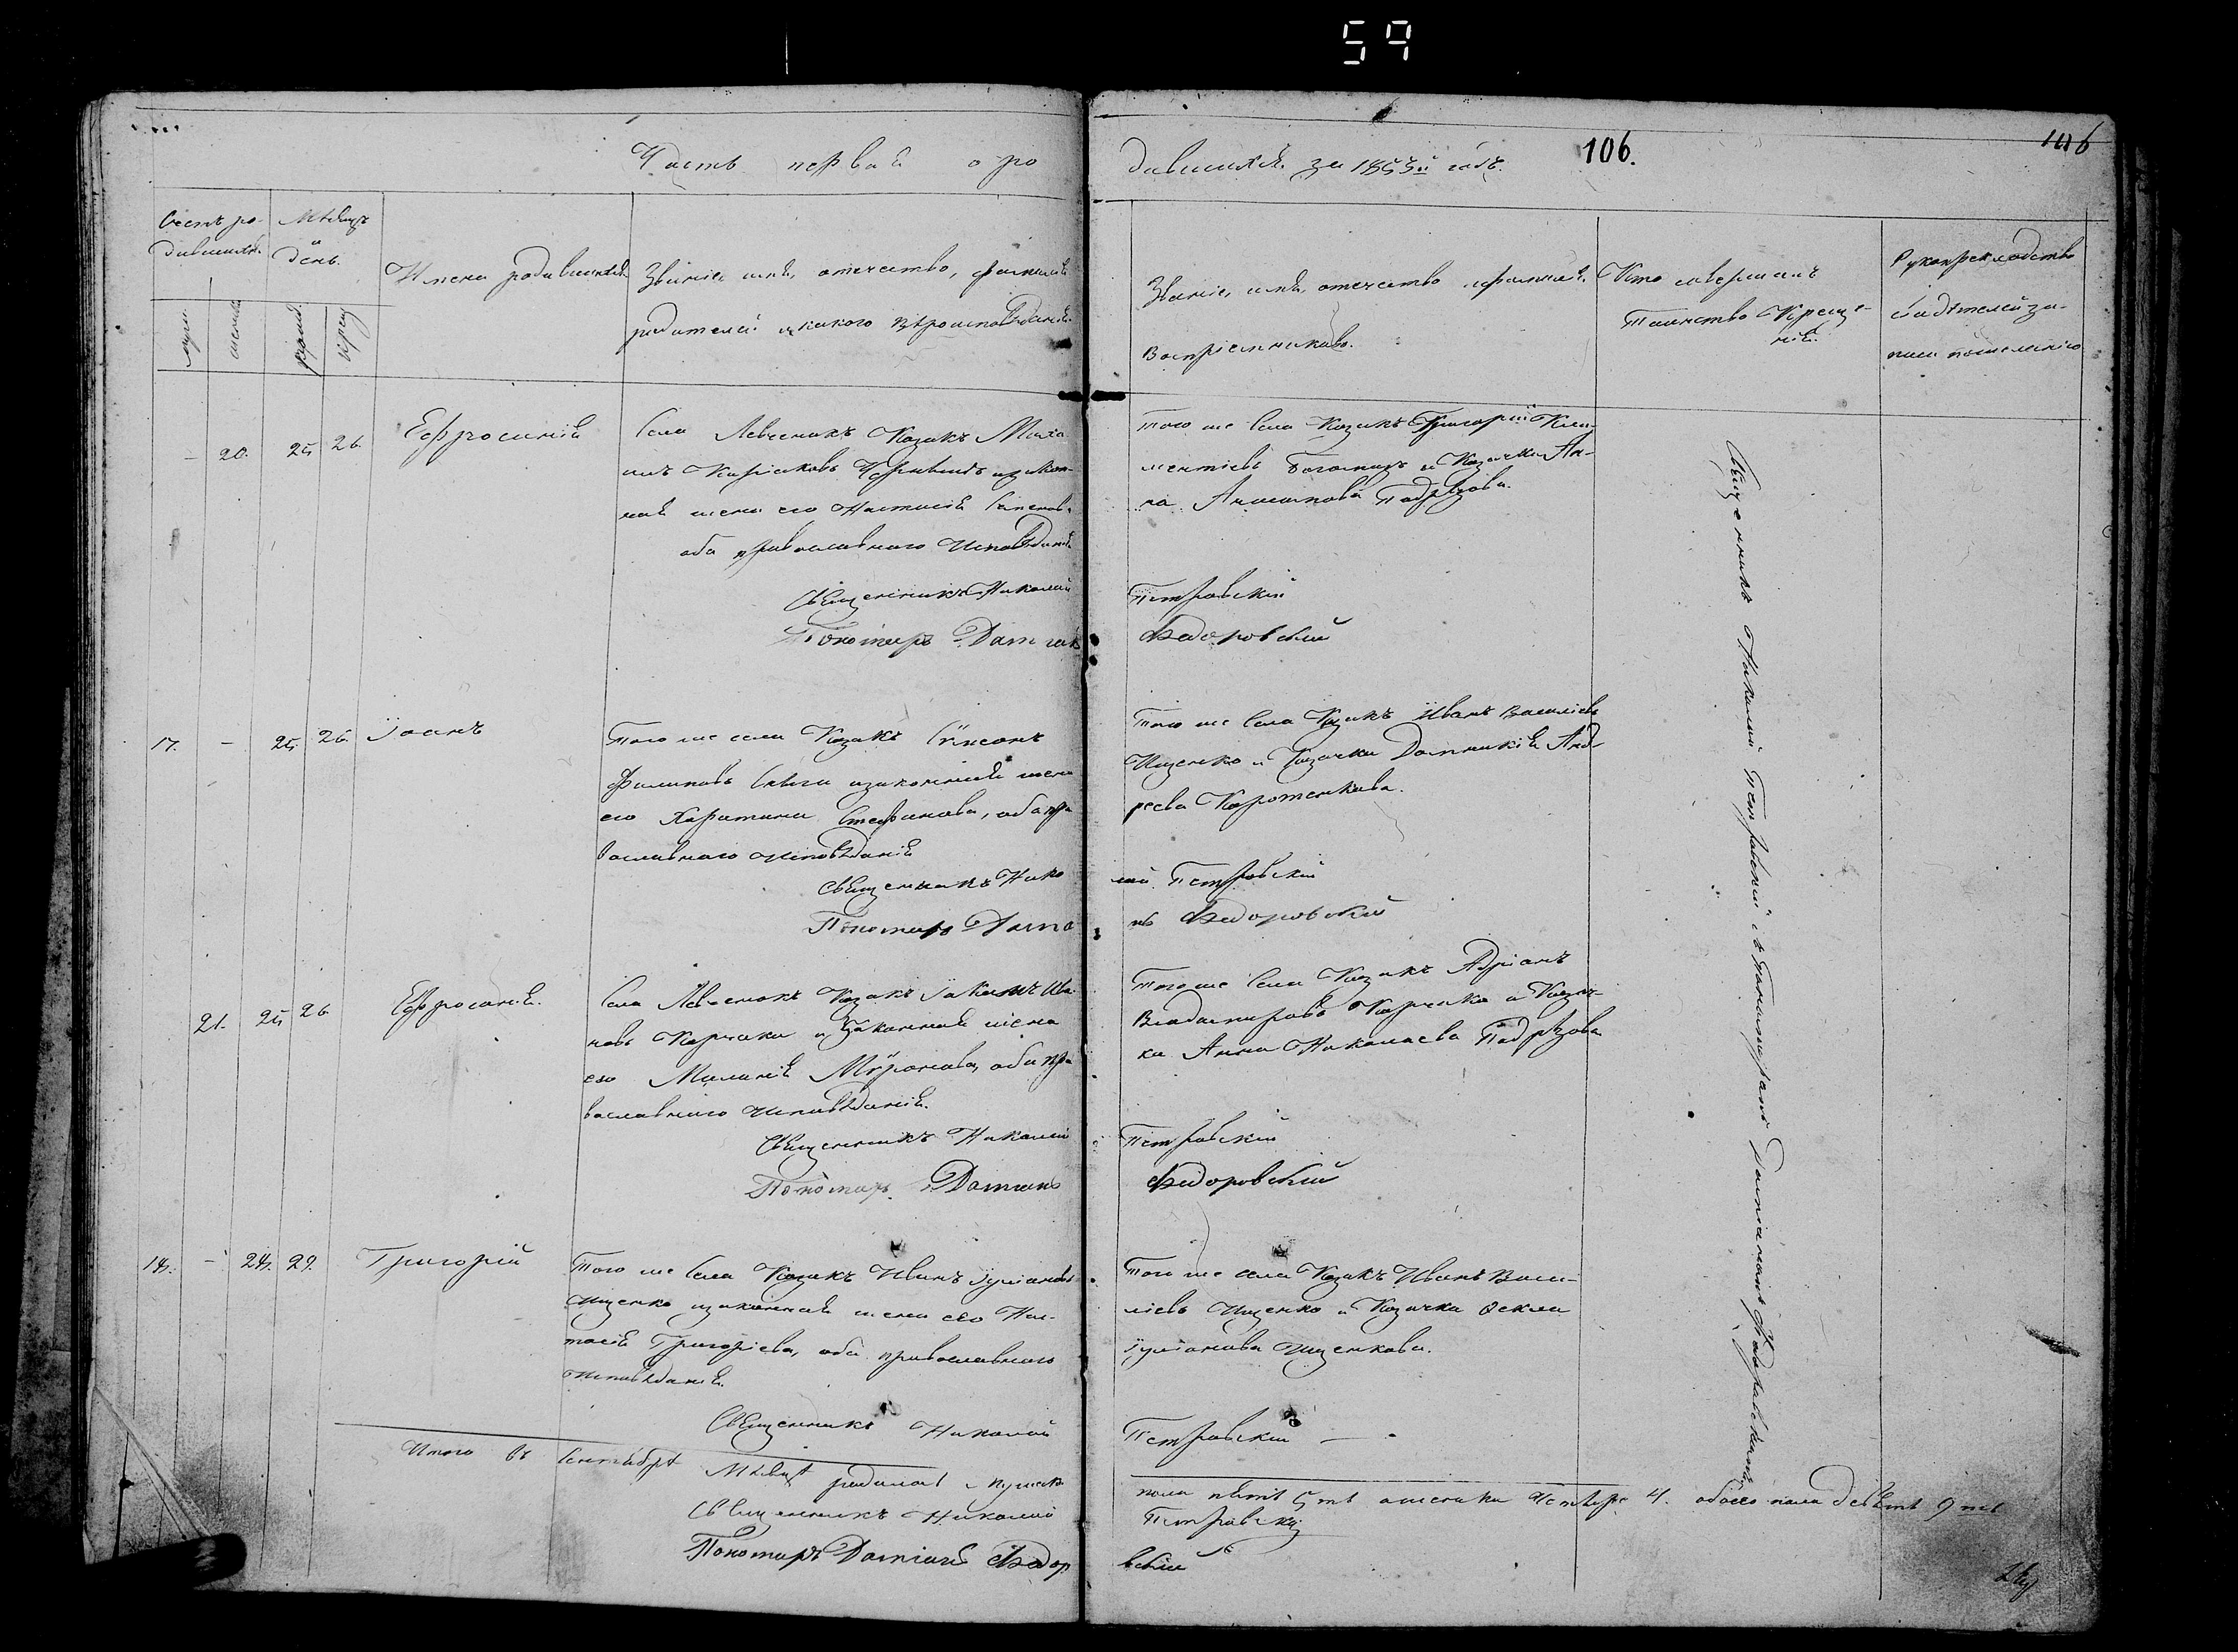 59
106.
106
Часть первая о ро
дившихся за 1853й годъ.
Счетъ ро-
дившихся.
Мѣсяцъ
и
день.
Имена родившихся
Званіе, имя, отечество, фамилія
родителей и какого вѣроисповѣданія.
Званіе, имя, отечество и фамилія
Воспріемниковъ.
Кто совершалъ
Таинство Креще-
нія.
Рукоприкладство
свидѣтелей за-
писи по желанію
20. 25 26. Ефросинія
Села Левченокъ Козакъ Миха
илъ Киріаковъ и закон-
ная жена его Настасія
оба православнаго Исповѣданія
Священникъ Николай
Пономаръ Даміанъ
Того же Села Козакъ Григорій Кли-
ментіевъ и Козачка Ан-
на Подрѣзова.
Петровскій
Федоровскій
17. - 25 26. Іоанъ
Того же села Козакъ Сѵмеонъ
Филиповъ и законная жена
его Харитина Стефанова, оба пра
вославнаго Исповѣданія
Священникъ Нико
Пономаръ Даміа
Того же Села Козакъ Иванъ Василіевъ
Ищенко и Козачка Домникія Анд-
реева Коротенкова.
лай Петровскій
нъ Федоровскій
21. 25 26 Ефросинія.
Села Левченокъ Козакъ Іакимъ Ива-
новъ Корчака и Законная жена
его Миланія Мѵронова, оба пра
вославнаго Исповѣданія.
Священникъ Николай
Пономаръ Даміанъ
Того же Села Козакъ Адріанъ
Владимировъ Корчака и Козач-
ка Анна Николаева Подрѣзова
Петровскій
Федоровскій
18. - 28. 29. Григорій
Того же Села Козакъ Иванъ Іуліановъ
Ищенко и законная жена его Нас-
тасія Григоріева, оба православнаго
Исповѣданія.
Священникъ Николай
Того же села Козакъ Иванъ Васи-
ліевъ Ищенко и Козачка Ѳекла
Іуліанова Ищенкова.
Петровскій
Священникъ Николай Петровскій съ Пономаремъ Даміаномъ Федоровскимъ
Итого въ Сентябрѣ Мѣсяцѣ родилось мужеска
пола пять 5ть а женска четыре 4. обоего пола девять 9ть
Священникъ Николай
Петровскій
Пономаръ Даміанъ Федор
вскій